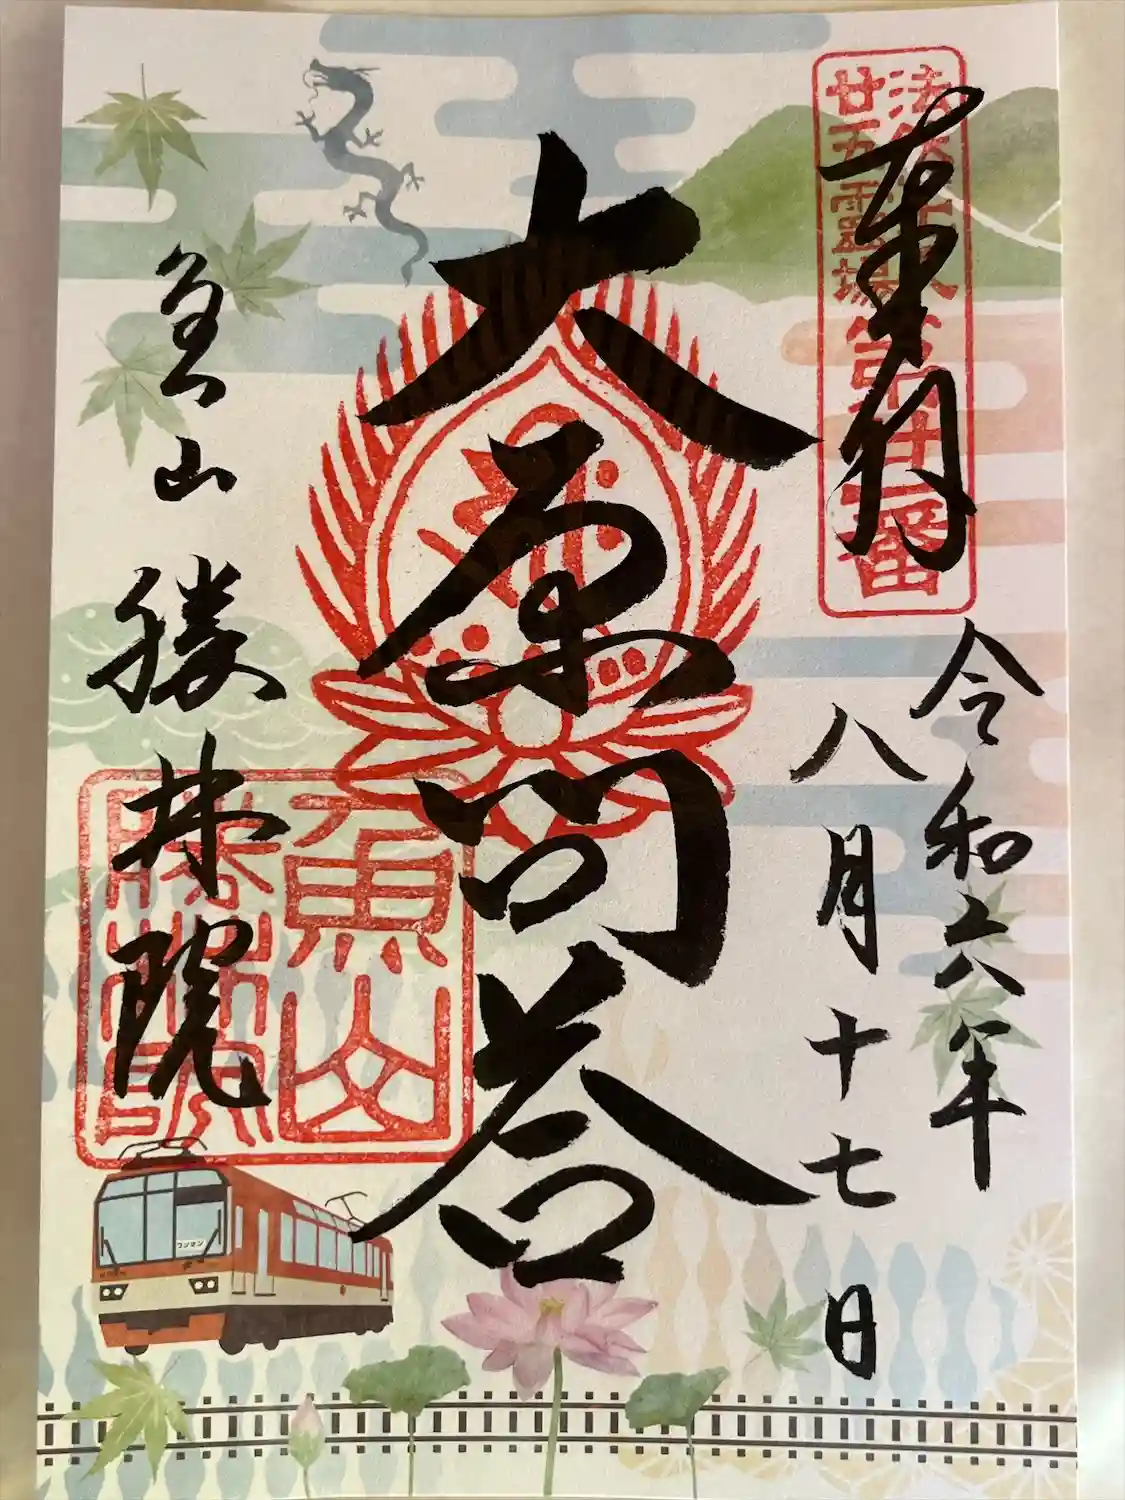 奉拝
法然上人
廿五霊場第廿一番
令和六年
八月十七日
大原問答
魚山
勝林院
魚山
勝林院
ワンマン